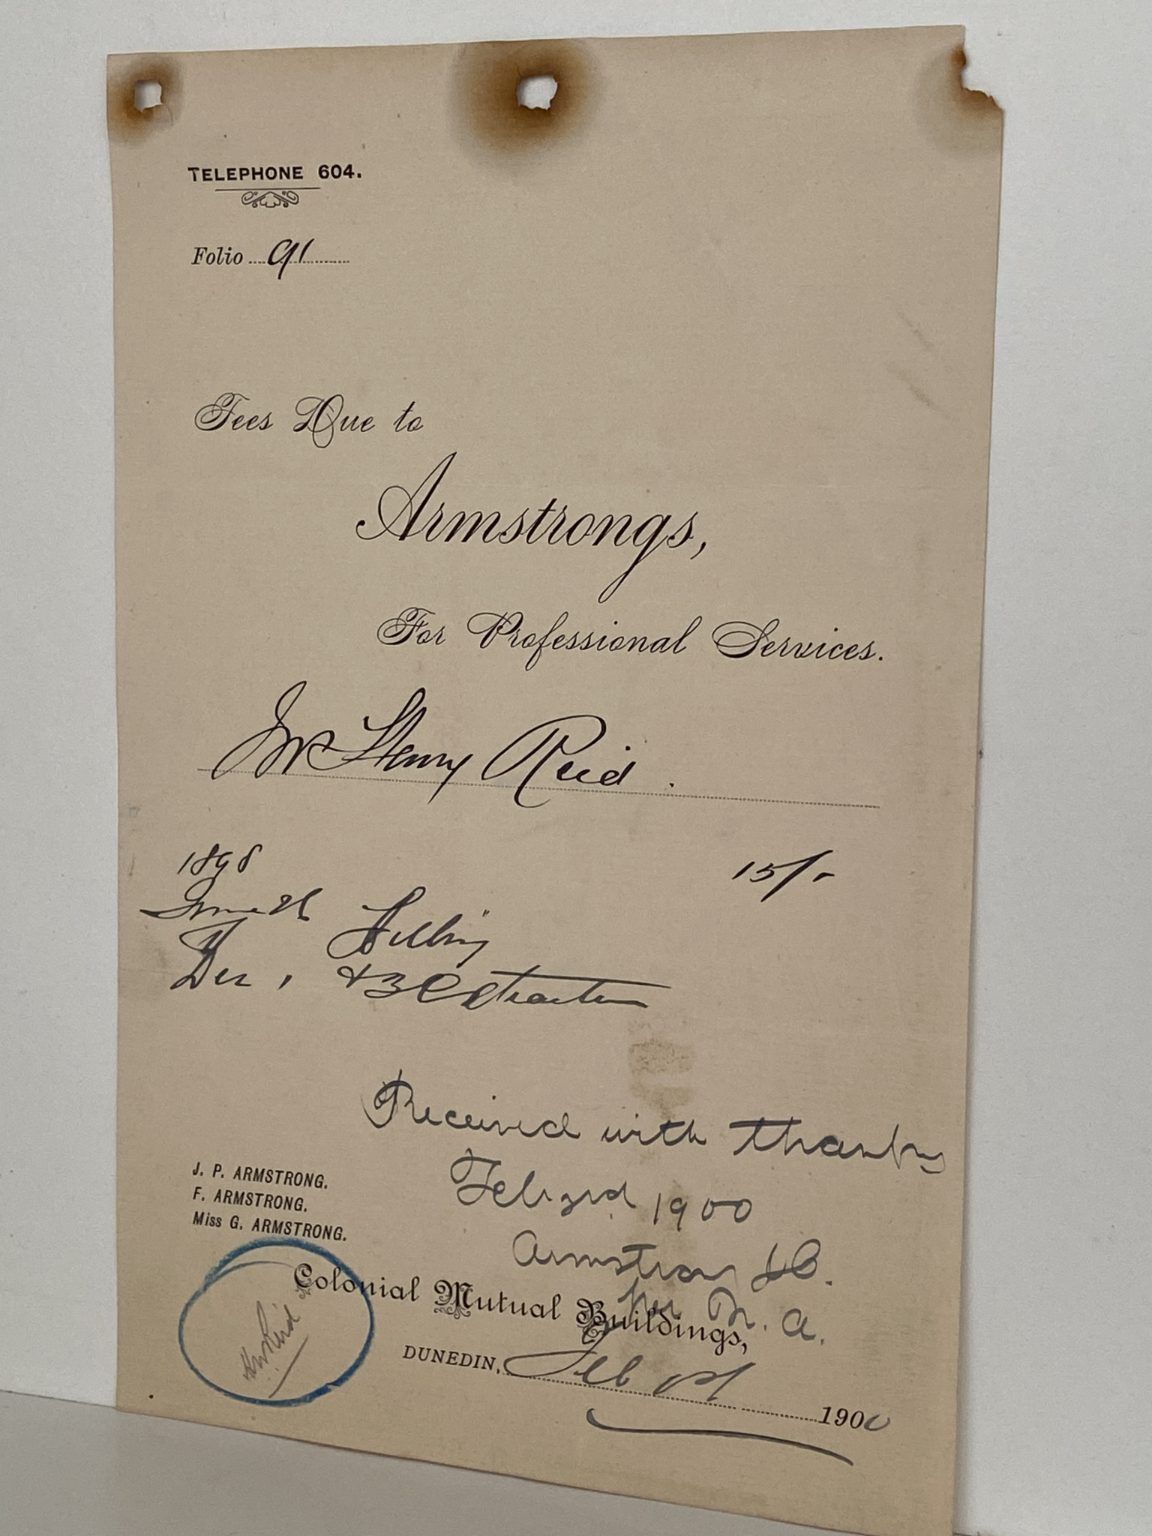 TELEPHONE 604.
Folio 91
Fees Due to
Armstrongs,
For Professional Services.
Mr Henry Reid.
1898 15/-
Filling
Dec, + 3 Extraction
Received with thanks
Feb 1900
J. P. ARMSTRONG.
F. ARMSTRONG.
Miss G. ARMSTRONG.
Armstrong & Co.
per N. A.
Colonial Mutual Buildings,
Reid
DUNEDIN, Feb 1st 1900